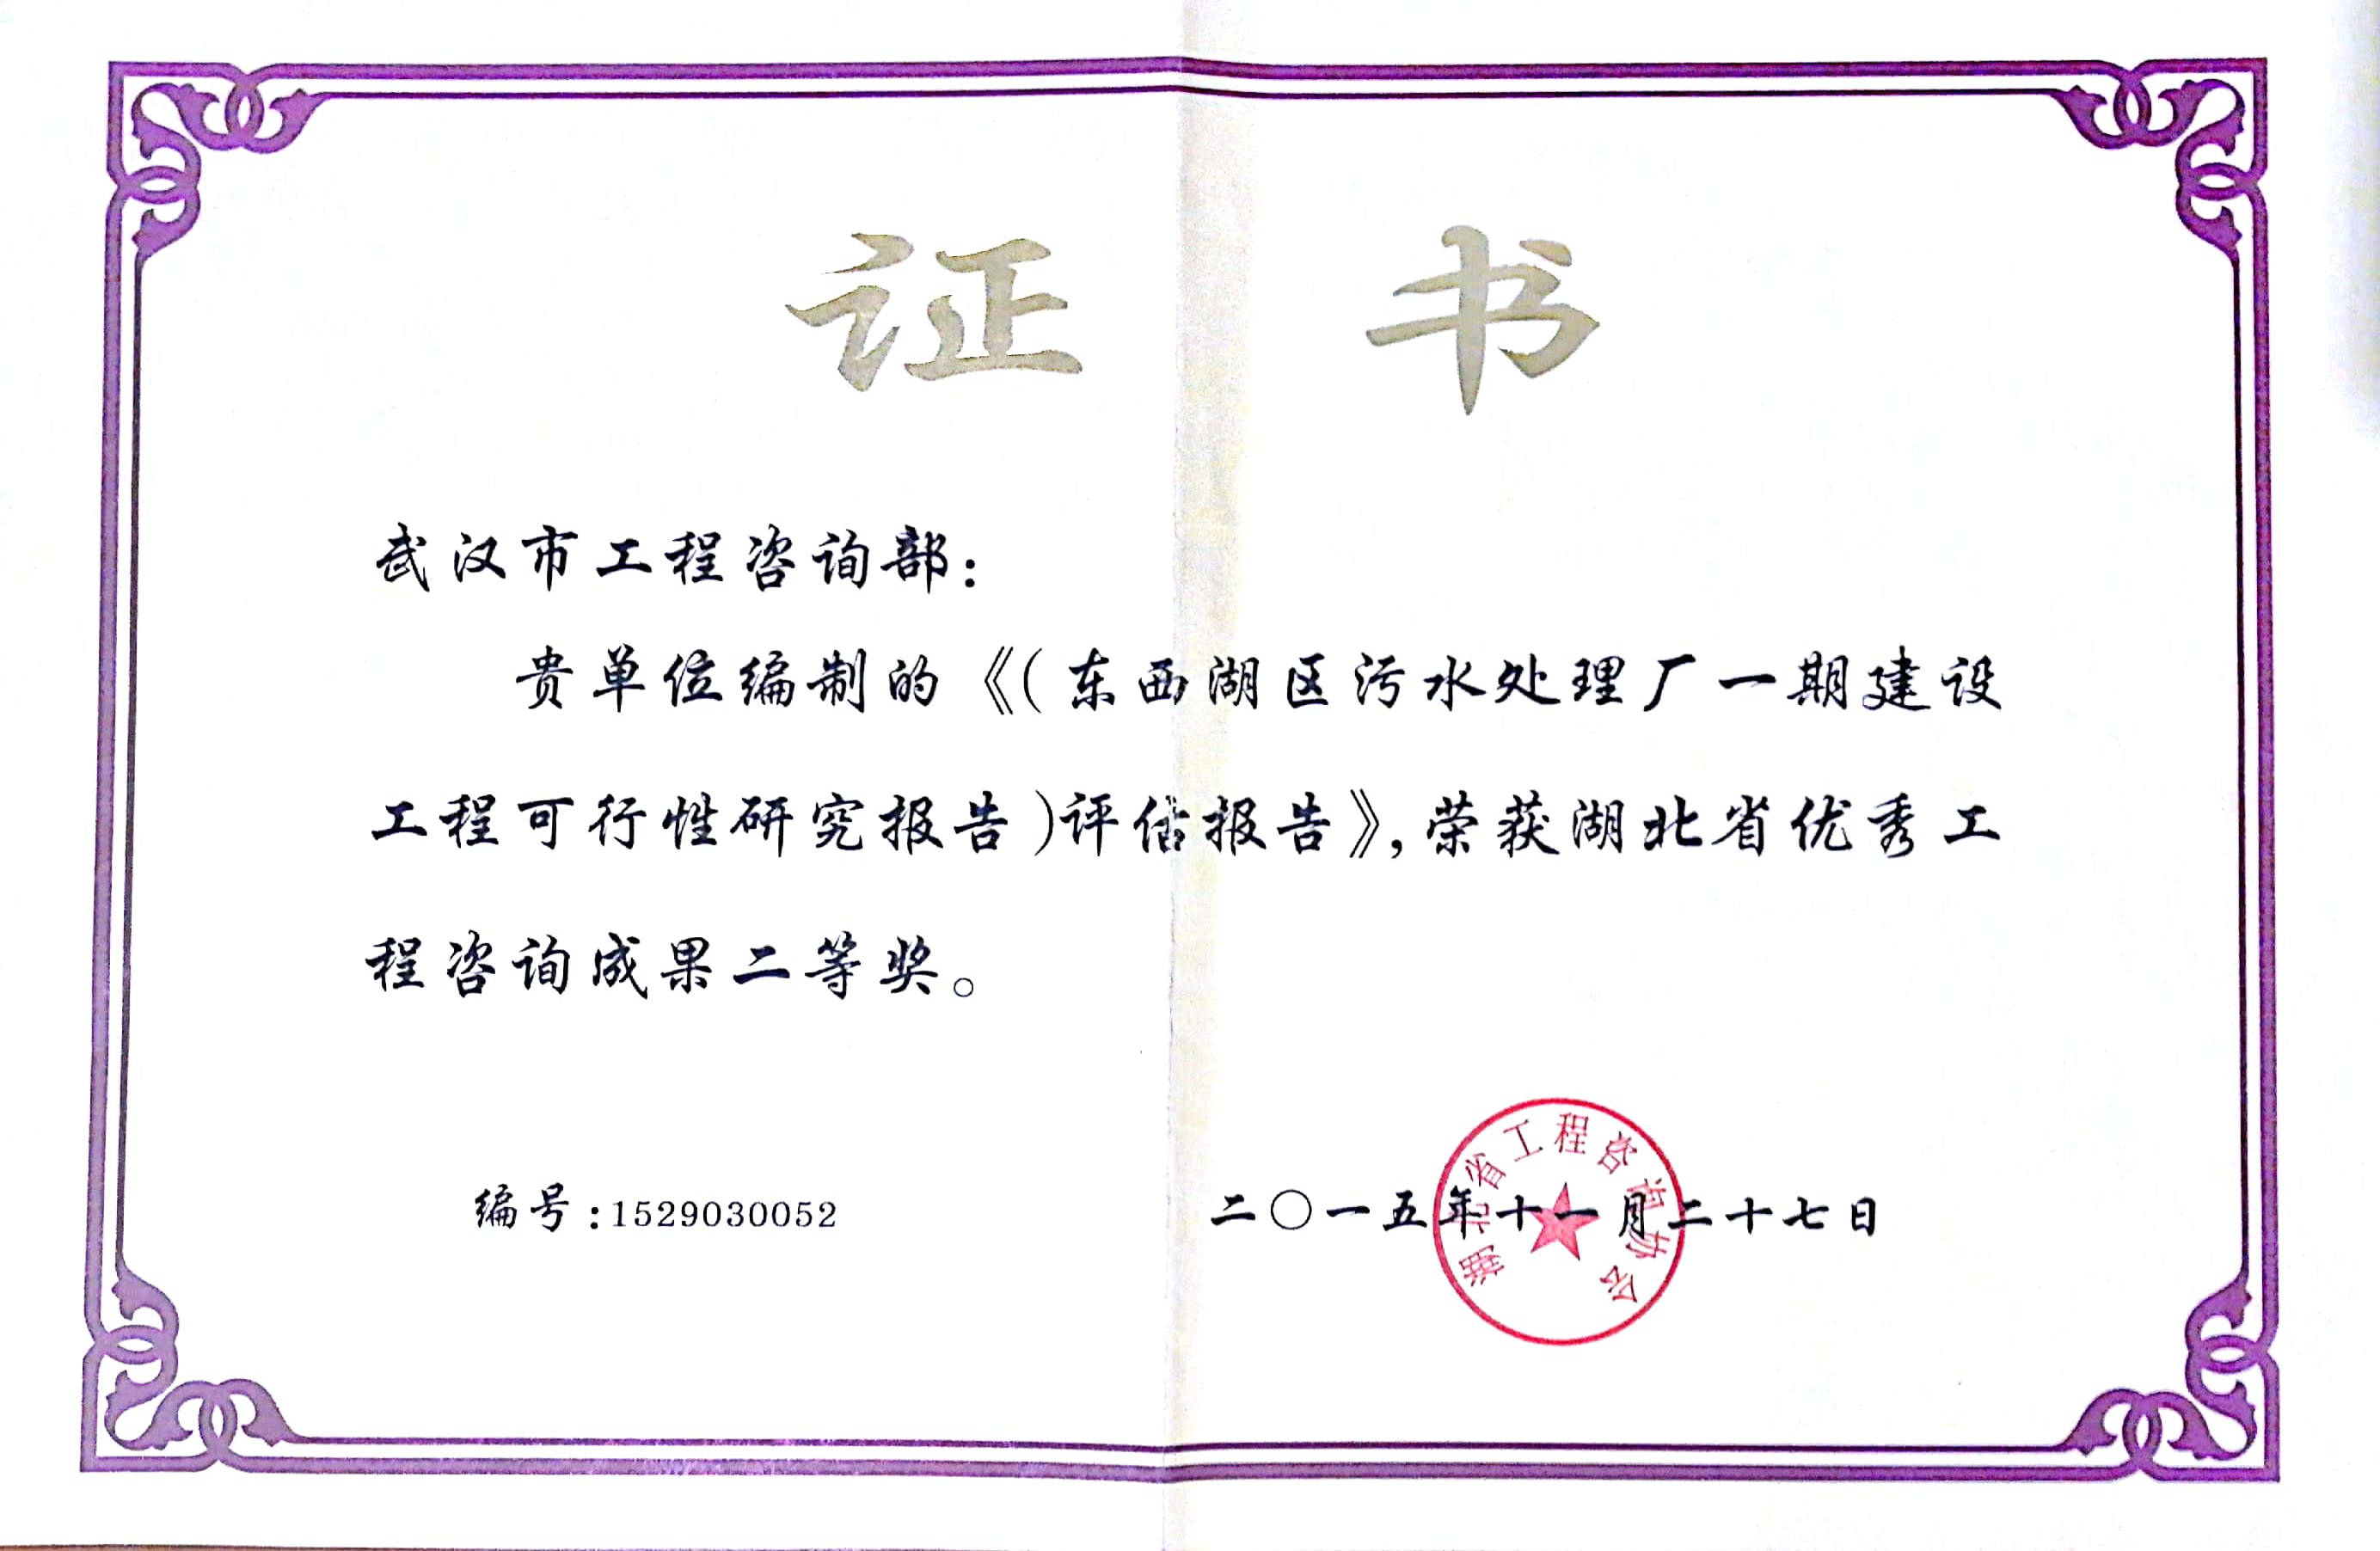 证书
武汉市工程咨询部：
贵单位编制的《（东西湖区污水处理厂一期建设
工程可行性研究报告）评估报告》，荣获湖北省优秀工
程咨询成果二等奖。
编号：1529030052
二〇一五年十一月二十七日
湖北省工程咨询协会